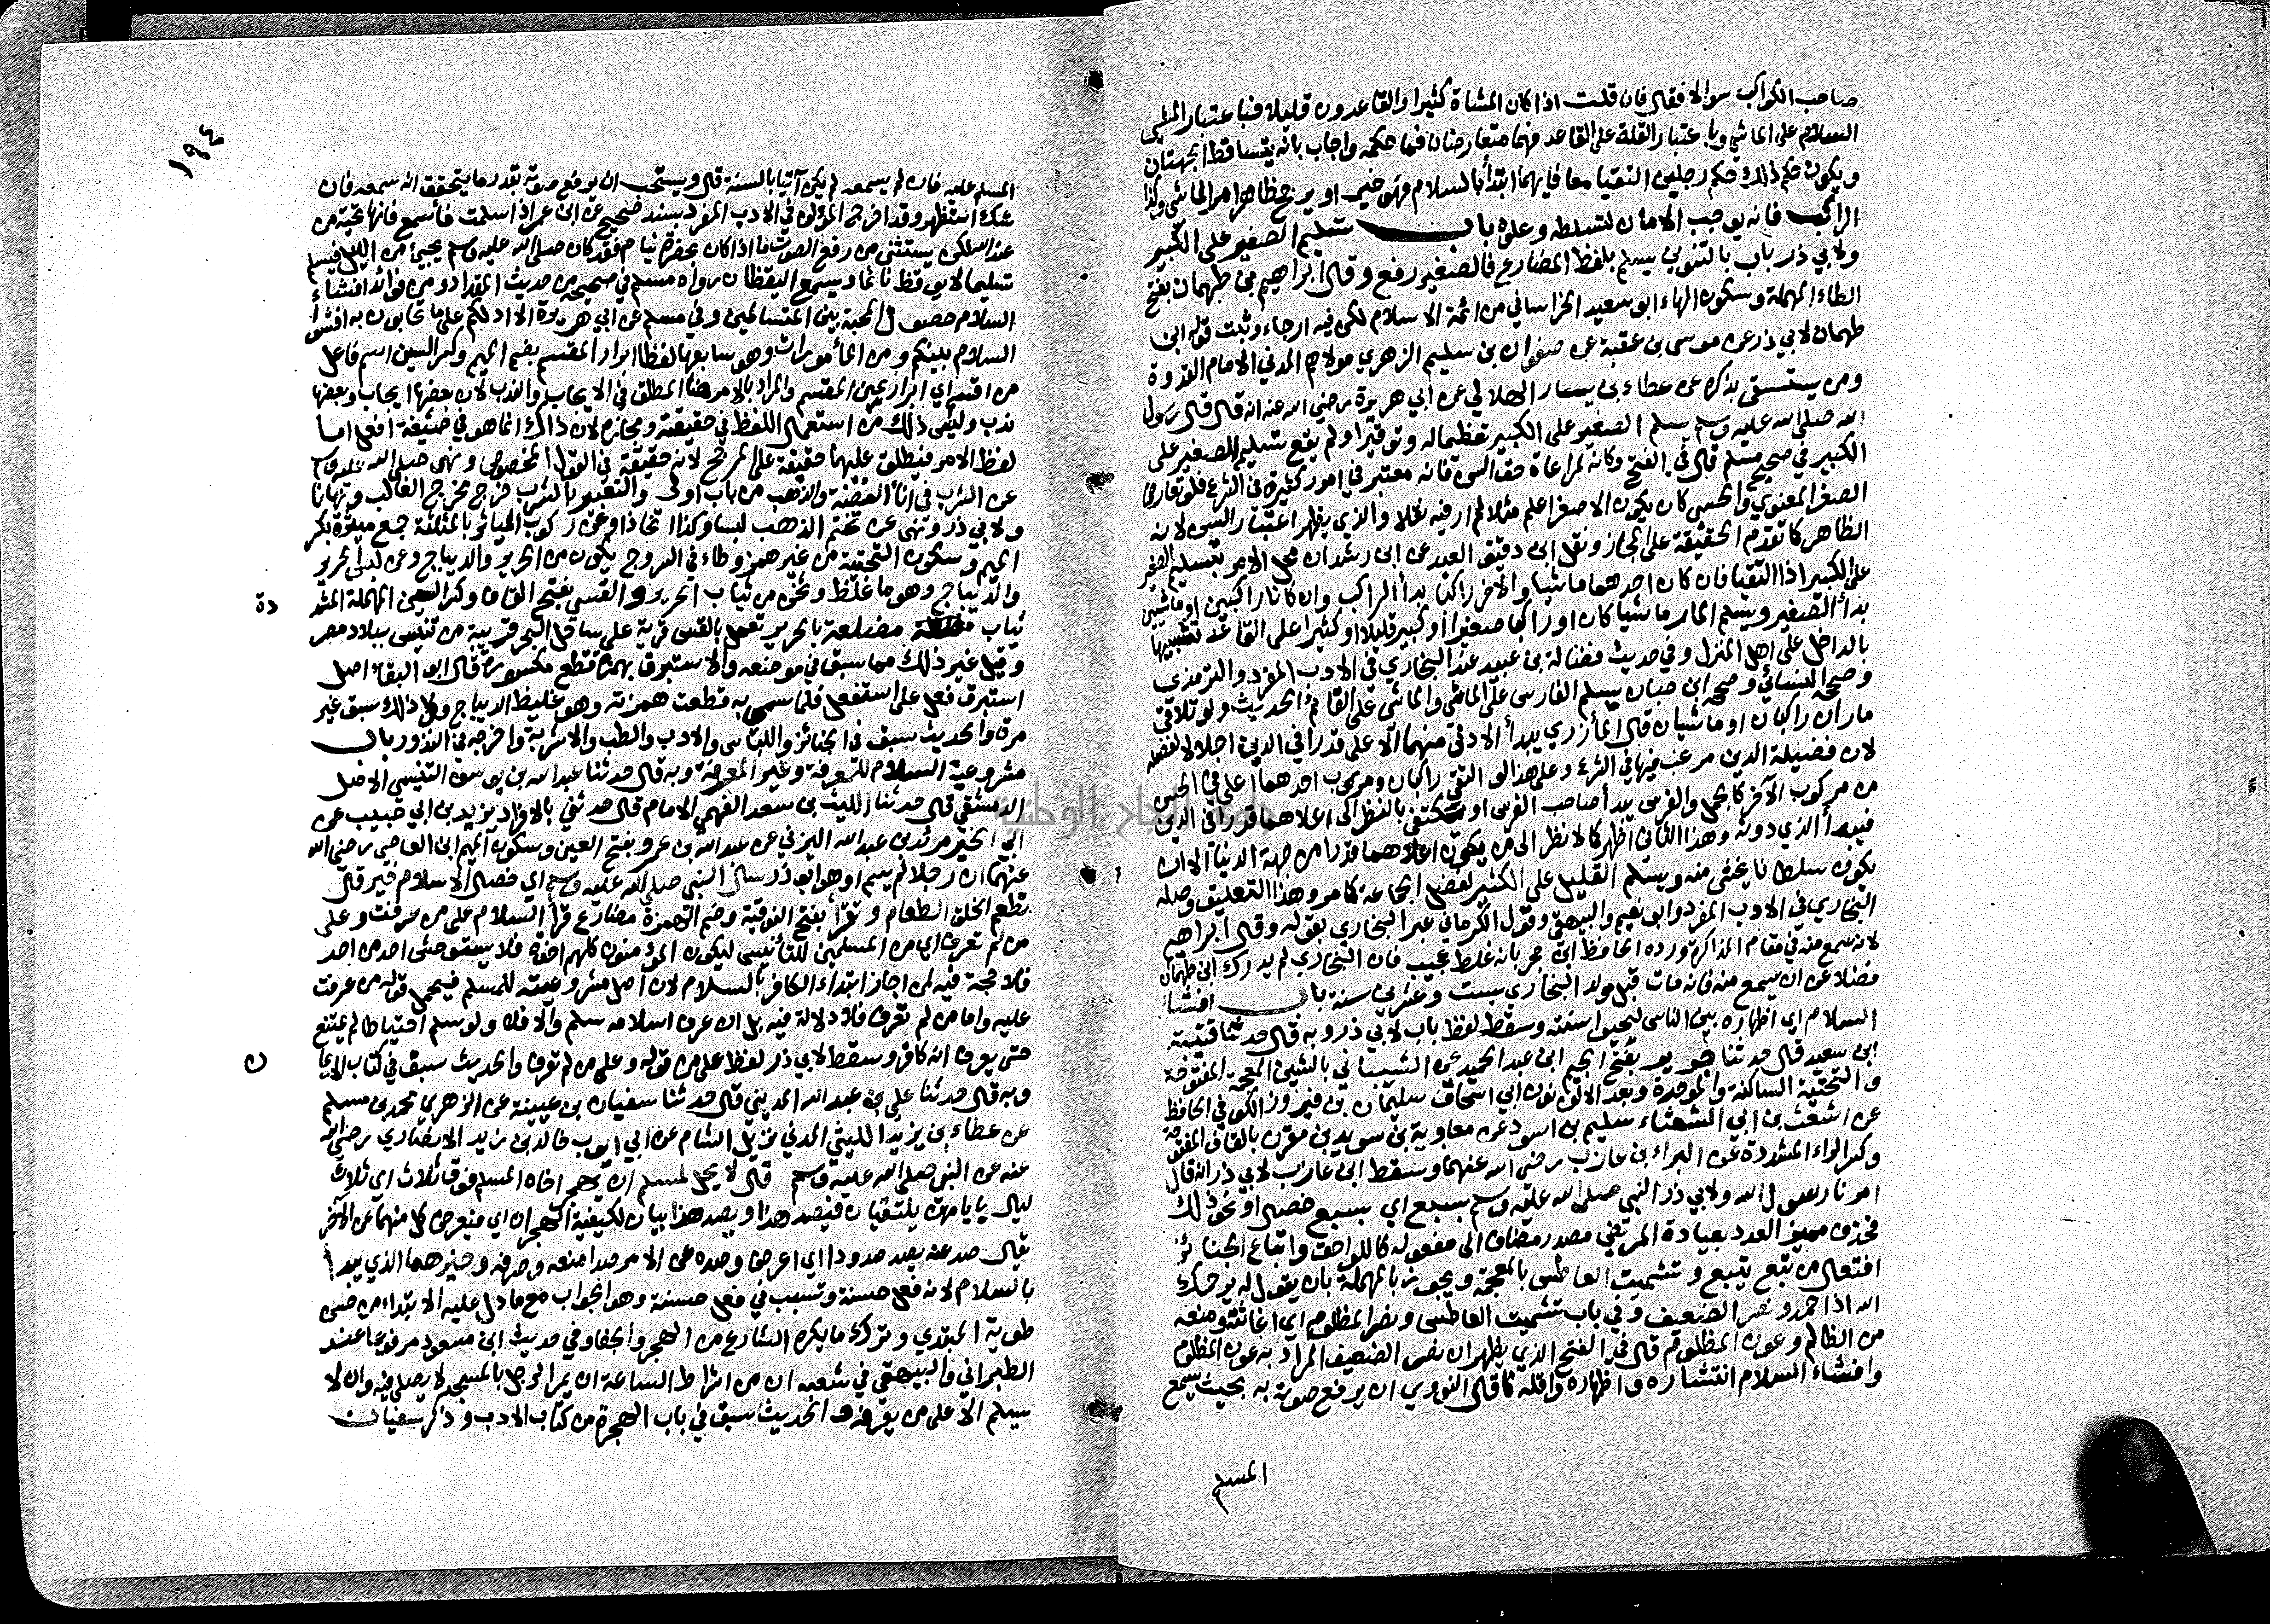 صاحب الكواكب سوالا فقال فان قلت اذا كان المشاة كثيرا والقاعدون قليلا فباعتبار المشي
السلام على الماشي وباعتبار القلة على القاعد فهما متعارضان فما حكمه واجاب بانه يتساقط الجهتان
ويكون حكم ذلك حكم رجلين التقيا معا فايهما ابتدأ بالسلام فهو خير او يرجح ظاهر امر الماشي وكذا
الراكب فانه يوجب الامان لتسلطه وعلوه باب تسليم الصغير على الكبير
ولابي ذر باب بالتنوين يسلم بلفظ المضارع فالصغير رفع وقال ابراهيم بن طهمان بفتح
الطاء المهملة وسكون الهاء ابو سعيد الخراساني من ائمة الاسلام لكن فيه ارجاء وثبت قوله ابن
طهمان لابي ذر عن موسى بن عقبة عن صفوان بن سليم الزهري مولاهم المدني الامام القدوة
ومن يستسقى بذكره عن عطاء بن يسار الهلالي عن ابي هريرة رضي الله عنه انه قال قال رسول
الله صلى الله عليه وسلم يسلم الصغير على الكبير تعظيما له وتوقيرا ولم يقع تسليم الصغير على
الكبير في صحيح مسلم قال في الفتح وكانه لمراعاة حق السن فانه معتبر في امور كثيرة في الشرع فلو تعارض
الصغر المعنوي والحسي كان يكون الاصغر اعلم مثلا لم ار فيه نقلا والذي يظهر اعتبار السن لانه
الظاهر كما تقدم الحقيقة على المجاز ونقل ابن دقيق العيد عن ابن رشد ان محل الامر بتسليم الصغير
على الكبير اذا التقيا فان كان احدهما ماشيا والاخر راكبا بدأ الراكب وان كانا راكبين او ماشيين
بدأ الصغير ويسلم المار ماشيا كان او راكبا صغيرا او كبير قليلا او كثيرا على القاعد تشبيها
بالداخل على اهل المنزل وفي حديث فضالة بن عبيد عند البخاري في الادب المفرد والترمذي
وصححه النسائي وصححه ابن حبان يسلم الفارس على الماشي والماشي على القائم الحديث ولو تلاقى
ماران راكبان او ماشيان قال المازري يبدأ الادنى منهما الاعلى قدرا في الدين اجلالا لفضله
لان فضيلة الدين مرغب فيها في الشرع وعلى هذا لو التقى راكبان ومركوب احدهما اعلى في الحس
من مركوب الآخر كالجمل والفرس يبدأ صاحب الفرس او يكتفى بالنظر الى اعلاهما قدرا في الدين
فيبدأ الذي دونه وهذا الثاني اظهر كما لا نظر الى من يكون اعلاهما قدرا من جهة الدنيا الا ان
يكون سلطانا يخشى منه ويسلم القليل على الكثير لفضل الجماعة كما مر وهذا التعليق وصله
البخاري في الادب المفرد وابو نعيم والبيهقي وقول الكرماني عبر البخاري بقوله وقال ابراهيم
لانه سمع منه في مقام المذاكرة رده الحافظ ابن حجر بانه غلط عجيب فان البخاري لم يدرك ابن طهمان
فضلا عن ان يسمع منه فانه مات قبل مولد البخاري بست وعشرين سنة باب افشاء
السلام اي اظهاره بين الناس ليحيوا سنته وسقط لفظ باب لابي ذر وبه قال حدثنا قتيبة
ابن سعيد قال حدثنا جرير بفتح الجيم ابن عبد الحميد عن الشيباني بالشين المعجمة المفتوحة
والتحتية الساكنة والموحدة وبعد الالف نون ابي اسحاق سليمان بن فيروز الكوفي الحافظ
عن اشعث بن ابي الشعثاء سليم بن اسود عن معاوية بن سويد بن مقرن بالقاف المفتوحة
وكسر الراء المشددة عن البراء بن عازب رضي الله عنهما وسقط ابن عازب لابي ذر انه قال
امرنا رسول الله ولابي ذر النبي صلى الله عليه وسلم بسبع اي بسبع خصال او نحو ذلك
فحذف مميز العدد بعيادة المريض مصدر مضاف الى مفعوله كاللواحق واتباع الجنائز
افتعال من تبع يتبع وتشميت العاطس بالمعجمة ويجوز بالمهملة بان يقول له يرحمك
الله اذا حمد ونصر الضعيف وفي باب تشميت العاطس ونصر المظلوم اي اغاثته ومنعه
من الظالم وعون المظلوم قال في الفتح الذي يظهر ان نصر الضعيف المراد به عون المظلوم
وافشاء السلام انتشاره واظهاره واقله كما قال النووي ان يرفع صوته به بحيث يسمع
المسلم
١٩٤
المسلم عليه فان لم يسمعه لم يكن آتيا بالسنة قال ويستحب ان يرفع صوته بقدر ما يتحقق انه سمعه فان
شك استظهر وقد اخرج المؤلف في الادب المفرد بسند صحيح عن ابن عمر اذا سلمت فأسمع فانها تحية من
عند الله لكن يستثنى من رفع الصوت ما اذا كان بحضرة نيام فقد كان صلى الله عليه وسلم يجيئ من الليل فيسلم
تسليما لا يوقظ نائما ويسمع اليقظان رواه مسلم في صحيحه من حديث المقداد ومن فوائد افشاء
السلام حصول المحبة بين المتسالمين وفي مسلم عن ابي هريرة الا ادلكم على ما تحابون به افشوا
السلام بينكم ومن المأمورات وهو سابعها لفظا ابرار المقسم بضم الميم وكسر السين اسم فاعل
من اقسم اي ابرار يمين المقسم والمراد بالامر هنا المطلق في الايجاب والندب لان بعضها ايجاب وبعضها
ندب وليس ذلك من استعمال اللفظ في حقيقته ومجازه لان ذاك انما هو في صيغة افعل اما
لفظ الامر فيطلق عليهما حقيقة على المرجح لانه حقيقة في القول المخصوص ونهى صلى الله عليه وسلم
عن الشرب في اناء الفضة والذهب من باب اولى والتعبير بالشرب خرج مخرج الغالب ونهانا
ولابي ذر ونهى عن تختم الذهب لبسا وكذا اتخاذا وعن ركوب المياثر بالمثلثة جمع ميثرة بكسر
الميم وسكون التحتية من غير همز وطاء في السروج يكون من الحرير والديباج وعن لبس الحرير
والديباج وهو ما غلظ وثخن من ثياب الحرير والقسي بفتح القاف وكسر السين المهملة المشد
دة
ثياب مضلعة بالحرير تعمل بالقس قرية على ساحل البحر قريبة من تنيس ببلاد مصر
وقيل غير ذلك مما سبق في موضعه والاستبرق بهمزة قطع مكسورة قال ابو البقاء اصل
استبرق فعل على استفعل فلما سمي به قطعت همزته وهو غليظ الديباج وكل ذلك سبق غير
مرة والحديث سبق في الجنائز واللباس والادب والطب والاشربة واخرجه في النذور باب
مشروعية السلام للمعرفة وغير المعرفة وبه قال حدثنا عبد الله بن يوسف التنيسي الاصل
الدمشقي قال حدثنا الليث بن سعد الفهمي الامام قال حدثني بالافراد يزيد بن ابي حبيب عن
ابي الخير مرثد بن عبد الله اليزني عن عبد الله بن عمرو بفتح العين وسكون الميم ابن العاصي رضي الله
عنهما ان رجلا لم يسم او هو ابو ذر سأل النبي صلى الله عليه وسلم اي خصال الاسلام خير قال
تطعم الخلق الطعام وتقرأ بفتح الفوقية وضم الهمزة مضارع قرأ السلام على من عرفت وعلى
من لم تعرف اي من المسلمين للتأنيس ليكون المؤمنون كلهم اخوة فلا يستوحش احد من احد
فلا حجة فيه لمن اجاز ابتداء الكافر بالسلام لان اصل مشروعيته للمسلم فيحمل قوله من عرفت
عليه واما من لم تعرف فلا دلالة فيه بل ان عرف اسلامه سلم والا فلا ولو سلم احتياطا لم يمتنع
حتى يعرف انه كافر وسقط لابي ذر لفظ على من قوله وعلى من لم تعرف والحديث سبق في كتاب الايما
ن
وبه قال حدثنا علي بن عبد الله المديني قال حدثنا سفيان بن عيينة عن الزهري محمد بن مسلم
عن عطاء بن يزيد الليثي المدني نزيل الشام عن ابي ايوب خالد بن زيد الانصاري رضي الله
عنه عن النبي صلى الله عليه وسلم قال لا يحل لمسلم ان يهجر اخاه المسلم فوق ثلاث اي ثلاث
ليال بايامهن يلتقيان فيصد هذا ويصد هذا بيان لكيفية الهجران اي فيعرض كل منهما عن الآخر
يقال صد عنه يصد صدودا اي اعرض وصده عن الامر صدا منعه وصرفه وخيرهما الذي يبدأ
بالسلام لانه فعل حسنة وتسبب في فعل حسنة وهو الجواب مع ما دل عليه الابتداء من حسن
طوية المبتدي وترك ما يكره الشارع من الهجر والجفاء وفي حديث ابن مسعود مرفوعا عند
الطبراني والبيهقي في شعبه ان من اشراط الساعة ان يمر الرجل بالمسجد لا يصلي فيه وان لا
يسلم الا على من يعرفه والحديث سبق في باب الهجرة من كتاب الادب وذكر سفيان
جامعة النجاح الوطنية